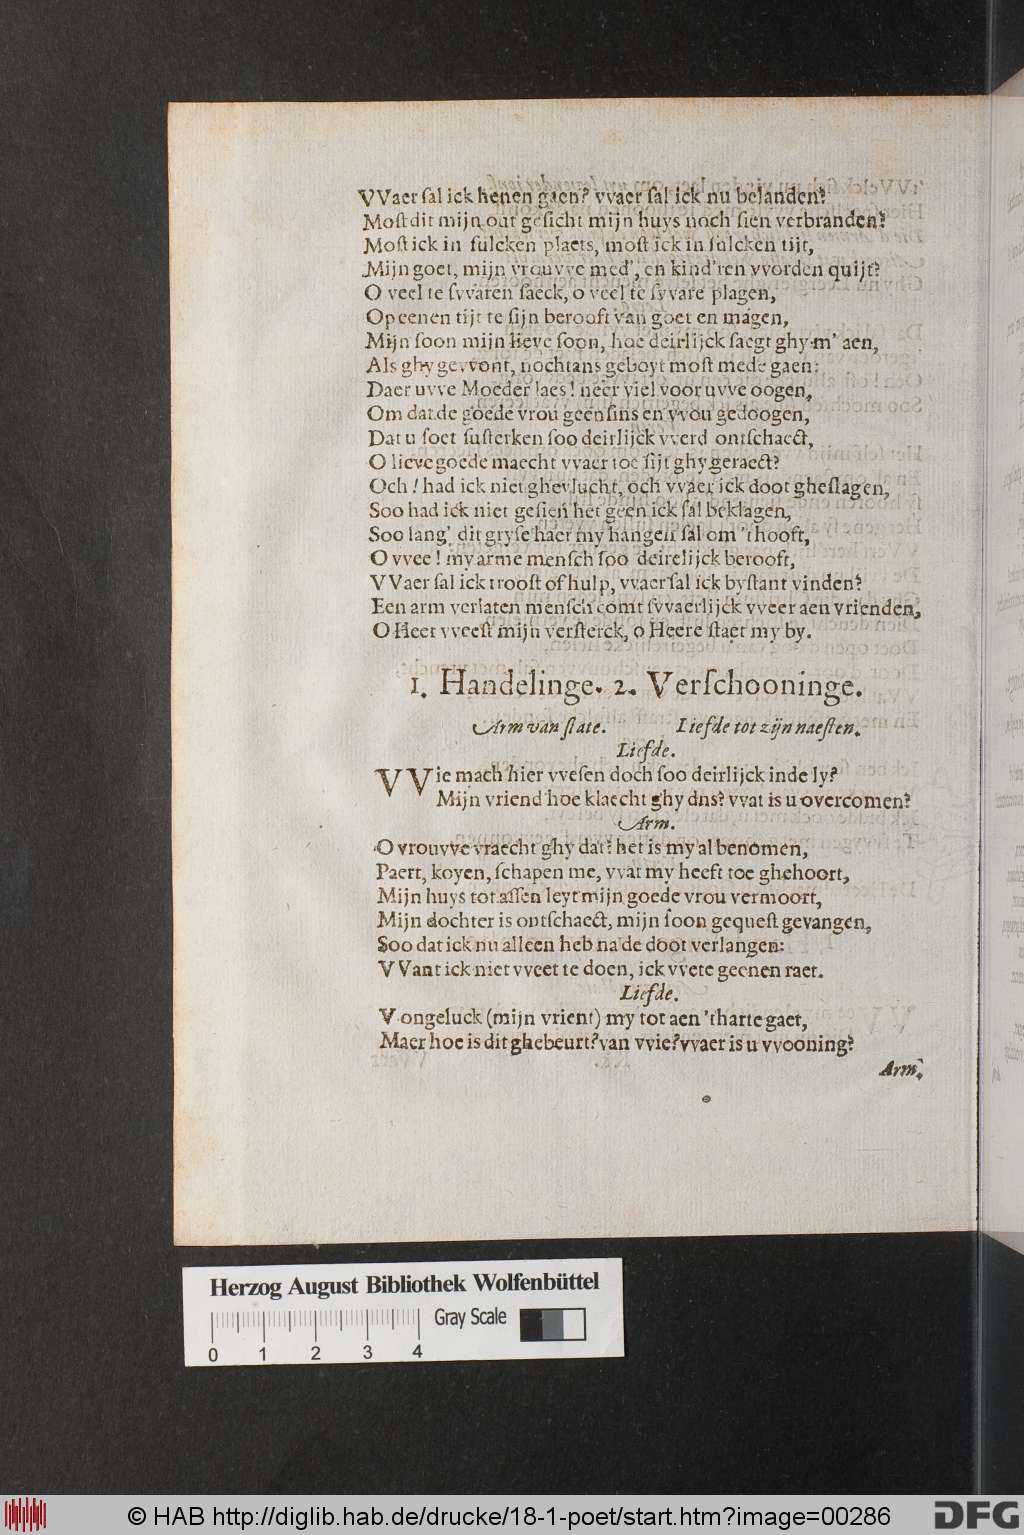 VVaer sal ick henen gaen? vvaer sal ick nu belanden?
Most dit mijn out gesicht mijn huys noch sien verbranden?
Most ick in sulcken plaets, most ick in sulcken tijt,
Mijn goet, mijn vrouvve med', en kind'ren vvorden quijt?
O veel te svvaren saeck, o veel te svvare plagen,
Op eenen tijt te sijn berooft van goet en magen,
Mijn soon mijn lieve soon, hoe deirlijck saegt ghy m' aen,
Als ghy gevvont, nochtans geboyt most mede gaen:
Daer uvve Moeder laes! neer viel voor uvve oogen,
Om dat de goede vrou geensins en vvou gedoogen,
Dat u soet susterken soo deirlijck vverd ontschaect,
O lieve goede maecht vvaer toe sijt ghy geraect?
Och! had ick niet ghevlucht, och vvaer ick doot gheslagen,
Soo had ick niet gesien het geen ick sal beklagen,
Soo lang' dit gryse haer my hangen sal om 't hooft,
O vvee! my arme mensch soo deirelijck berooft,
VVaer sal ick troost of hulp, vvaer sal ick bystant vinden?
Een arm verlaten mensch comt svvaerlijck vveer aen vrienden,
O Heer vveest mijn versterck, o Heere staet my by.
1. Handelinge. 2. Verschooninge.
Arm van state. Liefde tot zijn naesten.
Liefde.
VVie mach hier vvesen doch soo deirlijck inde ly?
Mijn vriend hoe klaecht ghy dns? vvat is u overcomen?
Arm.
O vrouvve vraecht ghy dat? het is my al benomen,
Paert, koyen, schapen me, vvat my heeft toe ghehoort,
Mijn huys tot assen leyt mijn goede vrou vermoort,
Mijn dochter is ontschaect, mijn soon gequest gevangen,
Soo dat ick nu alleen heb na de doot verlangen:
VVant ick niet vveet te doen, ick vvete geenen raet.
Liefde.
V ongeluck (mijn vrient) my tot aen 'tharte gaet,
Maer hoe is dit ghebeurt? van vvie? vvaer is u vvooning?
Arm.
Herzog August Bibliothek Wolfenbüttel
Gray Scale
0 1 2 3 4
© HAB http://diglib.hab.de/drucke/18-1-poet/start.htm?image=00286
DFG